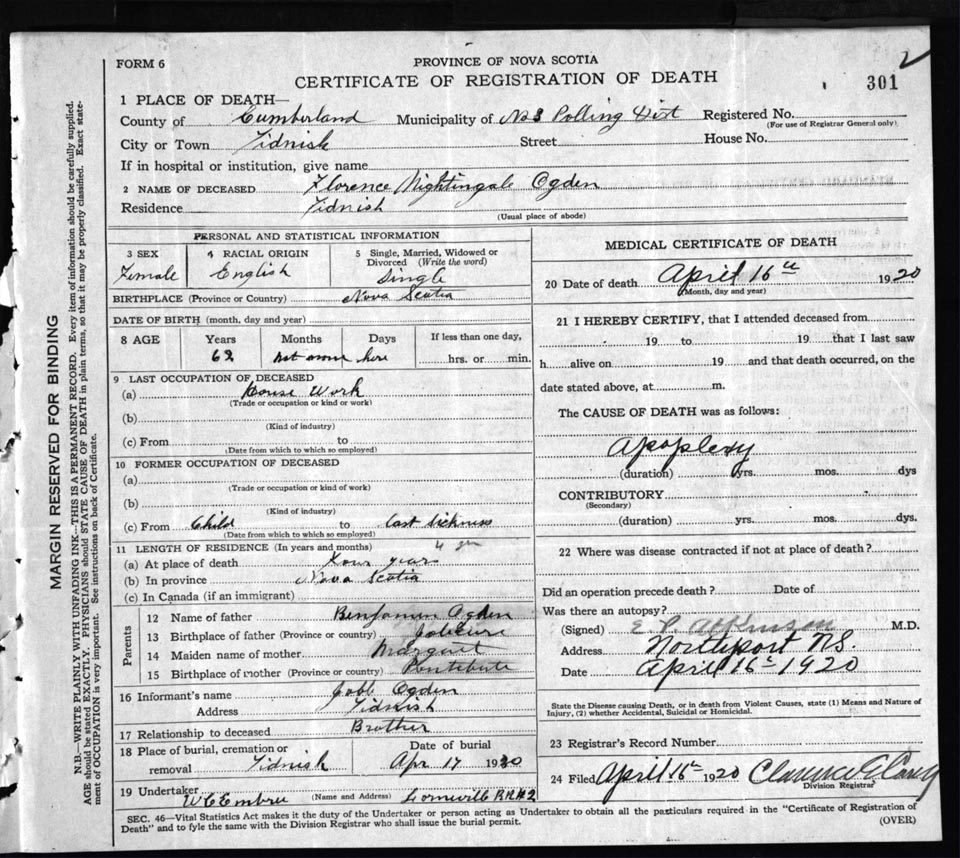 2
FORM 6
PROVINCE OF NOVA SCOTIA
CERTIFICATE OF REGISTRATION OF DEATH
301
1 PLACE OF DEATH—
County of Cumberland Municipality of No 3 Polling Dist Registered No.
(For use of Registrar General only)
City or Town Tidnish Street House No.
If in hospital or institution, give name
2 NAME OF DECEASED Florence Nightingale Ogden
Residence Tidnish
(Usual place of abode)
PERSONAL AND STATISTICAL INFORMATION
3 SEX Female
4 RACIAL ORIGIN English
5 Single, Married, Widowed or Divorced (Write the word) Single
BIRTHPLACE (Province or Country) Nova Scotia
DATE OF BIRTH (month, day and year)
8 AGE Years Months Days If less than one day,
62 not more here hrs. or min.
9 LAST OCCUPATION OF DECEASED
(a) House Work
(Trade or occupation or kind or work)
(b)
(Kind of industry)
(c) From to
(Date from which to which so employed)
10 FORMER OCCUPATION OF DECEASED
(a)
(Trade or occupation or kind of work)
(b)
(Kind of industry)
(c) From Child to last sickness
(Date from which to which so employed)
11 LENGTH OF RESIDENCE (In years and months)
(a) At place of death Four years
(b) In province Nova Scotia
(c) In Canada (if an immigrant)
Parents
12 Name of father Benjamin Ogden
13 Birthplace of father (Province or country)
14 Maiden name of mother Margaret
15 Birthplace of mother (Province or country)
16 Informant's name Ogden
Address Tidnish
17 Relationship to deceased Brother
18 Place of burial, cremation or removal Tidnish
Date of burial Apr 17 1920
19 Undertaker W C Embree (Name and Address) Lorneville RR#2
MEDICAL CERTIFICATE OF DEATH
20 Date of death April 16th 1920
(Month, day and year)
21 I HEREBY CERTIFY, that I attended deceased from
19 to 19 that I last saw
h alive on 19 and that death occurred, on the
date stated above, at m.
The CAUSE OF DEATH was as follows:
Apoplexy
(duration) yrs. mos. dys
CONTRIBUTORY
(Secondary)
(duration) yrs. mos. dys.
22 Where was disease contracted if not at place of death?
Did an operation precede death? Date of
Was there an autopsy?
(Signed) E. P. Atkinson M.D.
Address Northport N.S.
Date April 16th 1920
State the Disease causing Death, or in death from Violent Causes, state (1) Means and Nature of
Injury, (2) whether Accidental, Suicidal or Homicidal.
23 Registrar's Record Number
24 Filed April 16th 1920 Clarence E Carey
Division Registrar
SEC. 46—Vital Statistics Act makes it the duty of the Undertaker or person acting as Undertaker to obtain all the particulars required in the "Certificate of Registration of
Death" and to fyle the same with the Division Registrar who shall issue the burial permit.
(OVER)
MARGIN RESERVED FOR BINDING
N.B.—WRITE PLAINLY WITH UNFADING INK—THIS IS A PERMANENT RECORD. Every item of information should be carefully supplied.
AGE should be stated EXACTLY. PHYSICIANS should STATE CAUSE OF DEATH in plain terms, so that it may be properly classified. Exact state-
ment of OCCUPATION is very important. See instructions on back of Certificate.